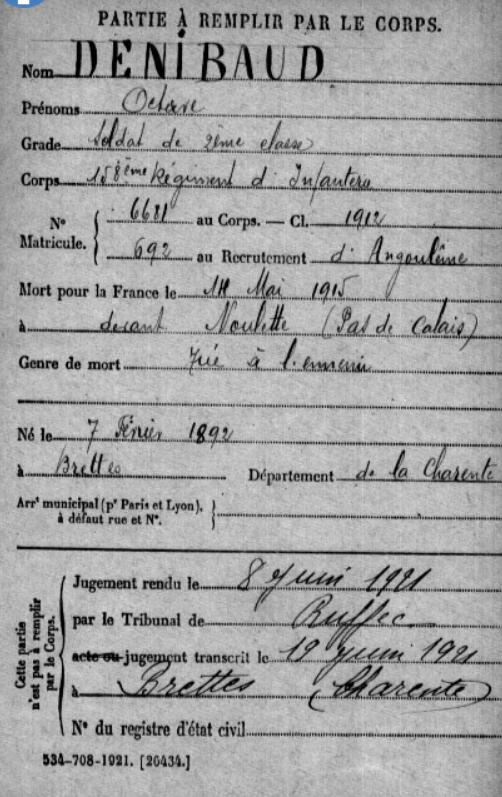 PARTIE À REMPLIR PAR LE CORPS.
Nom DENIBAUD
Prénoms Octave
Grade Soldat de 2ème classe
Corps 158ème Régiment d'Infanterie
N° Matricule. { 6681 au Corps. — Cl. 1912
692 au Recrutement d'Angoulême
Mort pour la France le Mai 1915
à devant Noulette (Pas de Calais)
Genre de mort Tué à l'ennemi
Né le 7 Février 1892
à Brettes Département de la Charente
Arrt municipal (pr Paris et Lyon),
à défaut rue et N°. }
Cette partie
n'est pas à remplir
par le Corps.
Jugement rendu le 8 Juin 1921
par le Tribunal de Ruffec
acte ou jugement transcrit le 19 juin 1921
à Brettes (Charente)
N° du registre d'état civil
534-708-1921. [26434.]